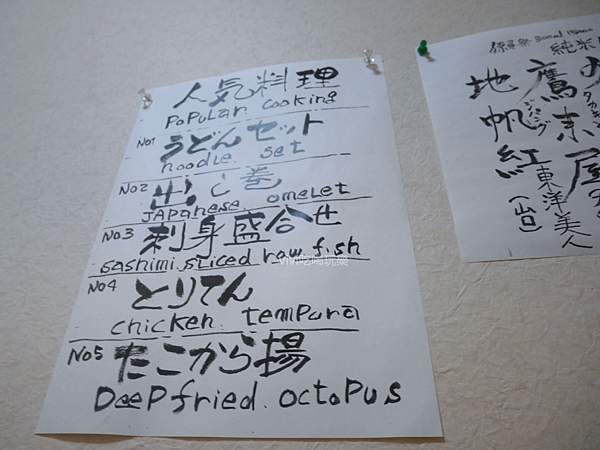 人気料理
POPULAR cooking
No1 うどんセット
noodle set
No2 出し巻
JAPanese. omeLet
No3 刺身盛合せ
sashimi.sliced raw fish
No4 とりてん
chicken. tempura
No5 たこから揚
Deep fried. octoPus
vivi吃喝玩樂
純米
地帆紅
鷹来屋
東洋美人
(山口)